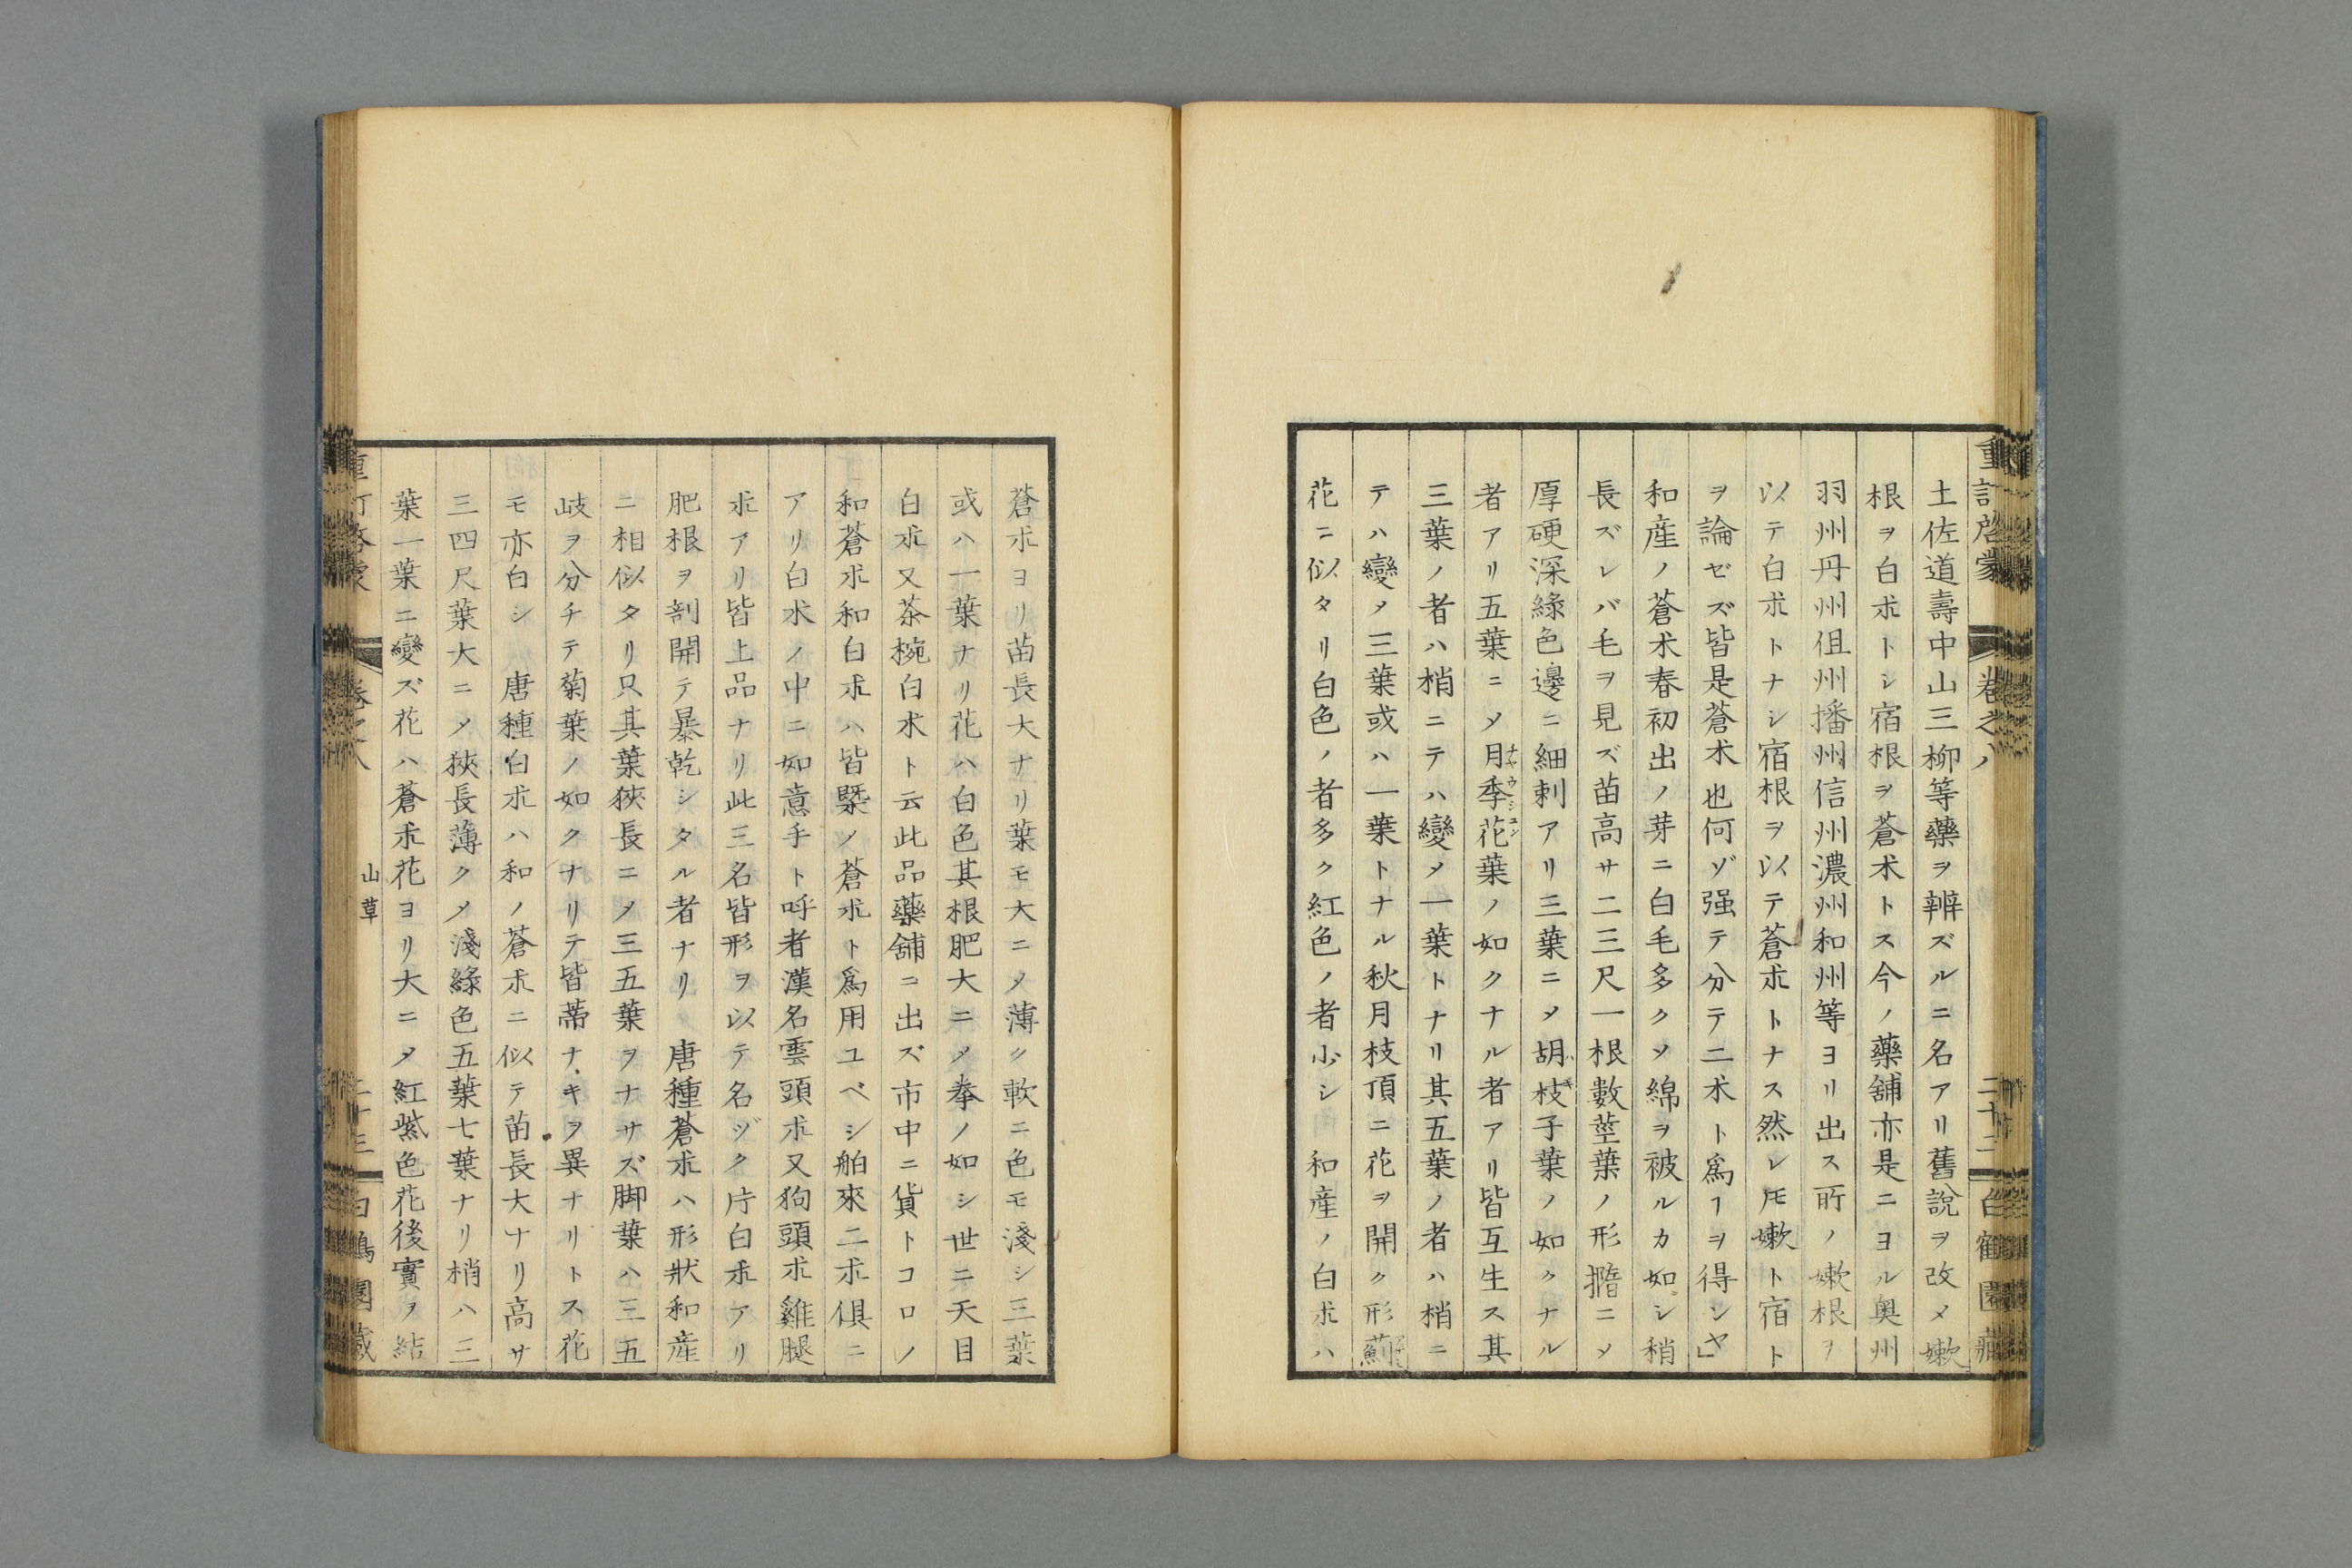 重訂啓蒙　卷之八　二十二　白鶴園藏
土佐道壽中山三柳等藥ヲ辨ズルニ名アリ舊說ヲ改メ嫩
根ヲ白朮トシ宿根ヲ蒼朮トス今ノ藥舖亦是ニヨル奥州
羽州丹州但州播州信州濃州和州等ヨリ出ス所ノ嫩根ヲ
以テ白朮トナシ宿根ヲ以テ蒼朮トナス然レ𪜈嫩ト宿ト
ヲ論ゼズ皆是蒼朮也何ゾ强テ分テ二朮ト爲ヿヲ得ンヤ」
和産ノ蒼朮春初出ノ芽ニ白毛多クノ綿ヲ被ルカ如シ稍
長ズレバ毛ヲ見ズ苗高サ二三尺一根數莖葉ノ形擔ニメ
厚硬深綠色邊ニ細刺アリ三葉ニメ胡枝子葉ノ如クナル
者アリ五葉ニメ月季花葉ノ如クナル者アリ皆互生ス其
三葉ノ者ハ梢ニテハ變メ一葉トナリ其五葉ノ者ハ梢ニ
テハ變メ三葉或ハ一葉トナル秋月枝頂ニ花ヲ開ク形薊
花ニ似タリ白色ノ者多ク紅色ノ者少シ　和産ノ白朮ハ
蒼朮ヨリ苗長大ナリ葉モ大ニメ薄ク軟ニ色モ淺シ三葉
或ハ一葉ナリ花ハ白色其根肥大ニメ拳ノ如シ世ニ天目
白朮又茶椀白朮ト云此品藥舖ニ出ズ市中ニ貨トコロノ
和蒼朮和白朮ハ皆槩ノ蒼朮ト爲用ユベシ舶來二朮俱ニ
アリ白朮ノ中ニ如意手ト呼者漢名雲頭朮又狗頭朮雞腿
朮アリ皆上品ナリ此三名皆形ヲ以テ名ヅク片白朮アリ
肥根ヲ剖開テ暴乾シタル者ナリ　唐種蒼朮ハ形狀和産
ニ相似タリ只其葉狹長ニメ三五葉ヲナサズ脚葉ハ三五
岐ヲ分チテ菊葉ノ如クナリテ皆蒂ナキヲ異ナリトス花
モ亦白シ　唐種白朮ハ和ノ蒼朮ニ似テ苗長大ナリ高サ
三四尺葉大ニメ狹長薄クメ淺綠色五葉七葉ナリ梢ハ三
葉一葉ニ變ズ花ハ蒼朮花ヨリ大ニメ紅紫色花後實ヲ結
山草